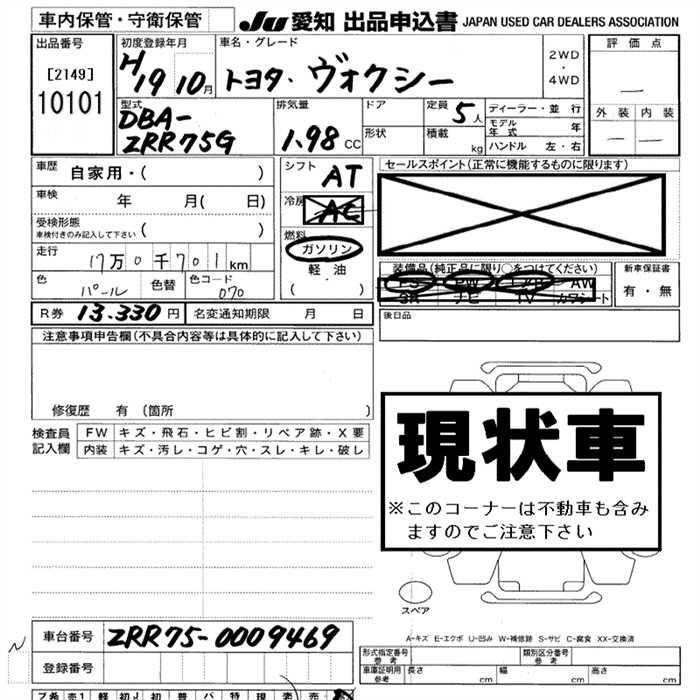 車内保管・守衛保管
JU 愛知 出品申込書 JAPAN USED CAR DEALERS ASSOCIATION
出品番号
[2149]
10101
初度登録年月
H19 10月
車名・グレード
トヨタ・ ヴォクシー
2WD
・
4WD
評価点
―
外装 内装
― ―
型式
DBA-
ZRR75G
排気量
1.98 CC
ドア
形状
定員 5人
積載 kg
ディーラー・並行
モデル年式 年
ハンドル 左・右
車歴 自家用・( )
車検 年 月( 日)
受検形態
車検付きのみ記入して下さい ( )
走行 17万0千701km
色 パール 色替 色コード 070
シフト
AT
冷房
AC
燃料
ガソリン
軽油
( )
セールスポイント(正常に機能するものに限ります)
装備品(純正品に限り○をつけてください)
PS PW エアB AW
SR ナビ TV カワシート
新車保証書
有・無
R券 13.330円 名変通知期限 月 日
後日品
注意事項申告欄(不具合内容等は具体的に記入して下さい)
修復歴 有(箇所 )
検査員
記入欄
FW キズ・飛石・ヒビ割・リペア跡・X要
内装 キズ・汚レ・コゲ・穴・スレ・キレ・破レ
現状車
※このコーナーは不動車も含み
ますのでご注意下さい
スペア
A-キズ E-エクボ U-凹み W-補修跡 S-サビ C-腐食 XX-交換済
車台番号 ZRR75-0009469
登録番号
形式指定番号
参考
類別区分番号
参考
車庫証明用
参考
長さ cm 幅 cm 高さ cm